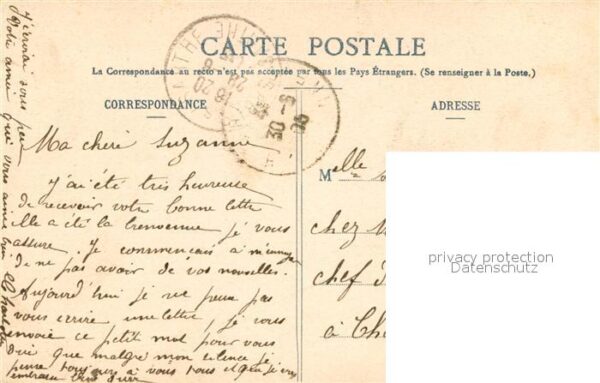 CARTE POSTALE
La Correspondance au recto n'est pas acceptée par tous les Pays Étrangers. (Se renseigner à la Poste.)
CORRESPONDANCE
ADRESSE
Ma chère Suzanne
J'ai été très heureuse
de recevoir votre bonne lettre
elle a été la bienvenue je vous
assure. Je commençais à m'ennuyer
de ne pas avoir de vos nouvelles.
Aujourd'hui je ne peux pas
vous écrire une lettre, je vous
envoie ce petit mot pour vous
dire que malgré mon silence je
pense toujours à vous tous et que je vous
embrasse bien
J'écrirai sous peu
Votre amie qui vous aime bien
Melle
chez M
chef d
à Ch
privacy protection
Datenschutz